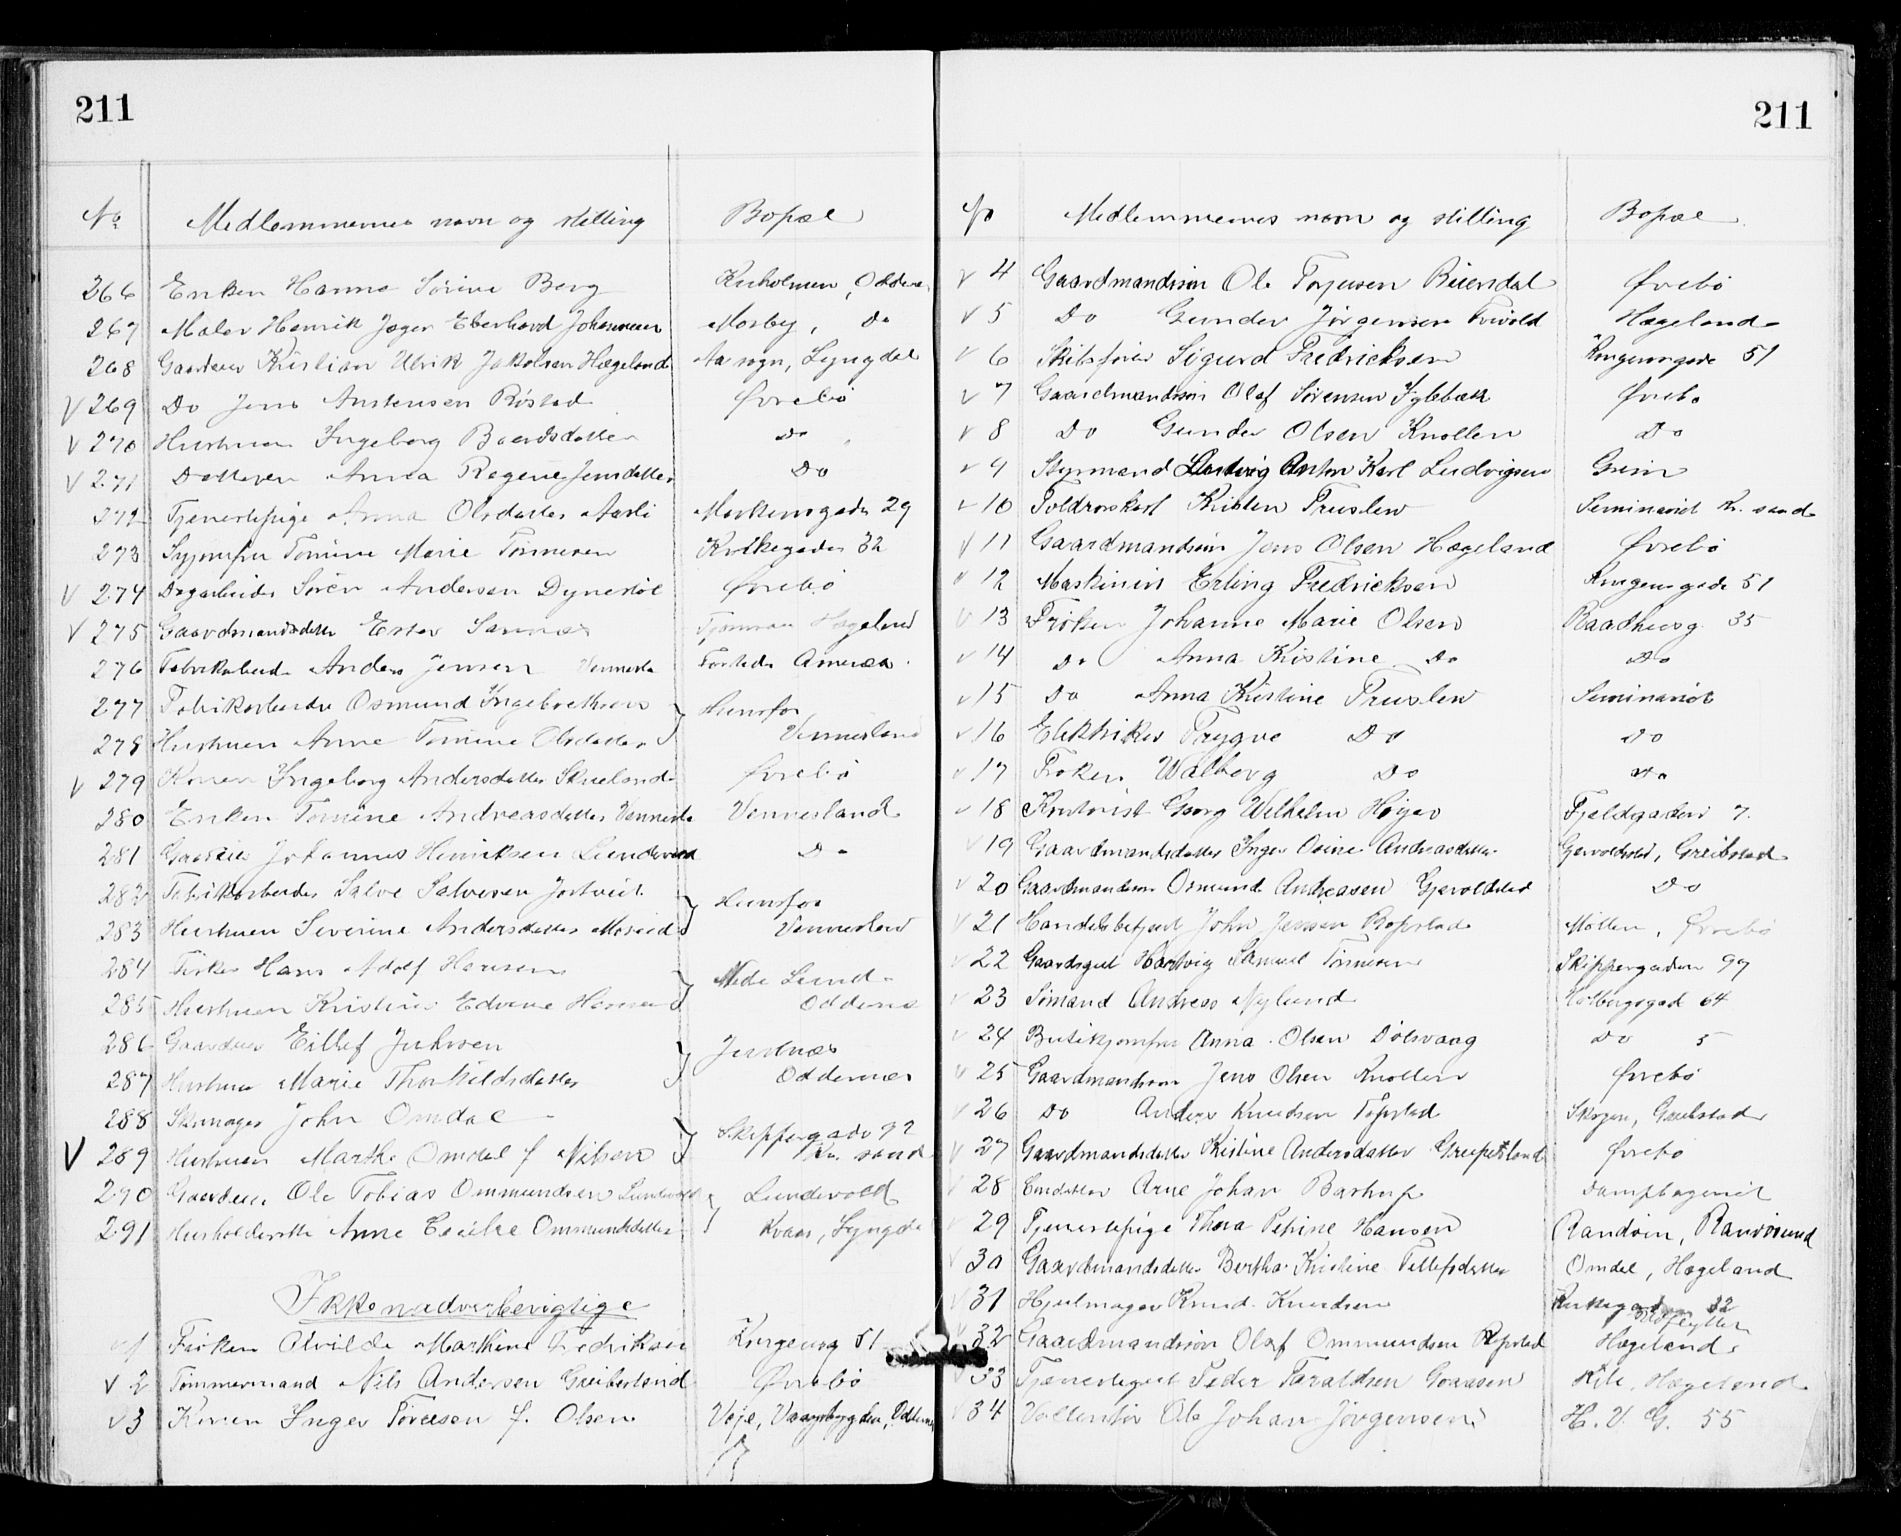 211
No Medlemmernes navn og stilling Bopæl
266 Enken Hanna Sørine Berg Kuholmen, Oddernes
267 Maler Henrik Jæger Eberhard Johannesen Mosby, Do
268 Gaardeier Kristian Ulrik Jakobsen Hægeland Aa sogn, Lyngdal
V 269 Do Jens Anstensen Røstad Øvrebø
V 270 Hustruen Ingeborg Baardsdatter Do
V 271 Datteren Anna Regine Jensdatter Do
272 Tjenestepige Anna Olsdatter Aasli Markensgade 29
273 Syjomfru Tomine Marie Tønnesen Kirkegaden 32
V 274 Dagarbeider Søren Andersen Dynestøl Øvrebø
V 275 Gaardmandsdatter Ester Hægeland
276 Fabrikarbeider Anders Jensen Vennesla America
277 Fabrikarbeider Osmund Ingebrethsen } Hunsfos
278 Hustruen Anne Tomine Olsdatter } Vennesland
V 279 Konen Ingeborg Andersdatter Skueland Øvrebø
280 Enken Tomine Andreasdatter Vennesla Vennesland
281 Gaardeier Johannes Henriksen Lundevold Do
282 Fabrikarbeider Salve Salvesen Jortveit } Hunsfos
283 Hustruen Severine Andersdatter Moseid } Vennesland
284 Fisker Hans Adolf Hansen } Nedre Lund
285 Hustruen Kristine Edvine Hansen } Oddernes
286 Gaardeier Eilef Juhlsen } Justnæs
287 Hustruen Marie Thorkildsdatter } Oddernes
288 Skomager John Omdal } Skippergade 92
V 289 Hustruen Marthe Omdal f Nilsen } Kr. sand
290 Gaardeier Ole Tobias Ommundsen Lundevold } Lundevold
291 Husholderske Anne Cecilie Ommundsdatter } Kvaas, Lyngdal
Ikke nadverberigtige
V 1 Frøken Alvilde Marthine Fredriksen Kongensg 51
V 2 Tømmermand Nils Andersen Greibesland Øvrebø
V 3 Konen Inger Toresen f. Olsen Veje, Vaagsbygden, Oddernes
211
No Medlemmernes navn og stilling Bopæl
V 4 Gaardmandssøn Ole Torjusen Beiendal Øvrebø
V 5 Do Gunder Jørgensen Hægeland
V 6 Skibsfører Sigurd Fredricksen Kongensgade 51
V 7 Gaardmandssøn Olaf Sørensen Øvrebø
V 8 Do Gunder Olsen Knollen Do
V 9 Styrmand Ludvig Anton Karl Ludvigsen Grim
V 10 Toldroskarl Kristen Truslew Seminariet Kr. sand
V 11 Gaardmandssøn Jens Olsen Hægeland Øvrebø
V 12 Maskinist Erling Fredricksen Kongensgade 51
V 13 Frøken Johanne Marie Olsen Raadhusg. 35
V 14 Do Anna Kristine Do Do
V 15 Do Anna Kristine Truslew Seminariet
V 16 Elektriker Trygve Do Do
V 17 Frøken Walborg Do Do
V 18 Kontorist Georg Wilhelm Høyer Fjeldgaden 7.
V 19 Gaardmandsdatter Inger Osine Andreasdatter Gjervoldstad, Greibstad
V 20 Gaardmandssøn Osmund Andreasen Gjervoldstad Do
V 21 Handelsbetjent John Jensen Ropstad Mollen, Øvrebø
V 22 Gaardsgut Hartvig Samuel Tønnesen Skippergaden 97
V 23 Sømand Andreas Nylund Holbergsgad 64
V 24 Butikjomfru Anna Olsen Dølsvaag Do 5
V 25 Gaardmandssøn Jens Olsen Knollen Øvrebø
V 26 Do Anders Knudsen Skogen, Greibstad
V 27 Gaardmandsdatter Kristine Andersdatter Greipesland Øvrebø
V 28 Arne Johan Barstup Dampbageriet
V 29 Tjenestepige Thora Petrine Hansen Randøen, Randøsund
V 30 Gaardmandsdatter Bertha Kristine Tellefsdatter Omdal, Hægeland
V 31 Hjulmager Knud Knudsen 32
V 32 Gaardmandssøn Olaf Ommundsen Ropstad Hægeland
V 33 Tjenestegut Peder Taraldsen Goaasen Kile, Hægeland
V 34 Volontør Ole Johan Jørgensen H. V. G. 55